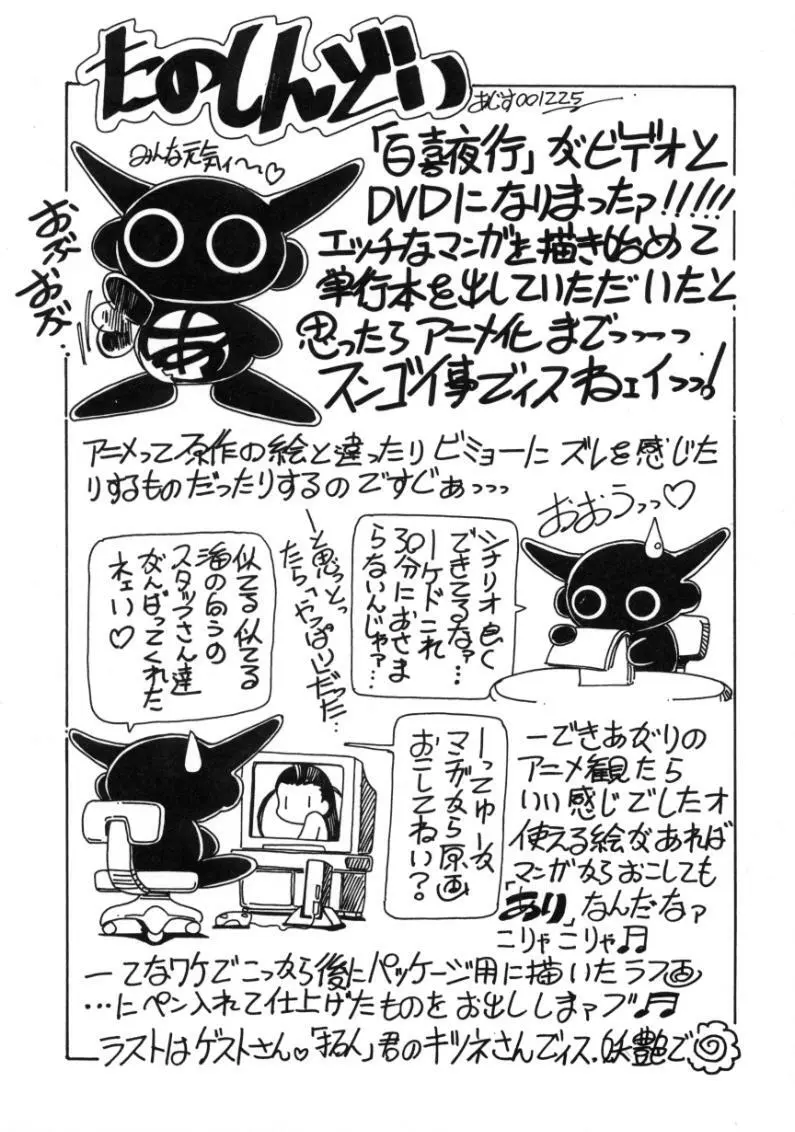 たのしんどい
あじす001225
みんな元気ィ〜♡
おぶおぶ…
「百喜夜行」がビデオと
DVDになりまったァ!!!!!
エッチなマンガを描き始めて
単行本を出していただいたと
思ったらアニメ化までっーっ
スンゴイ事でィスねェイっっ!
アニメって原作の絵と違ったりビミョーにズレを感じた
りするものだったりするのですじぁっっっ
おおうっっ♡
シナリオ良く
できてるなァ…
ーケドコれ
30分におさま
らないんじゃァ…
ーと思っとっ
たら「やっぱり」だった…
似てる似てる
海の向うの
スタッフさん達
がんばってくれた
ネェい♡
ーってゆーか
マンガから原画
おこしてねい?。
ーできあがりの
アニメ観たら
いい感じでしたオ
使える絵があれば
マンガからおこしても
「あり」なんだなァ
こりゃこりゃ♬
ーてなワケでこっから後にパッケージ用に描いたラフ画
…にペン入れて仕上げたものをお出ししまァブ♬
ラストはゲストさん♡君のキツネさんでィス.妖艶で